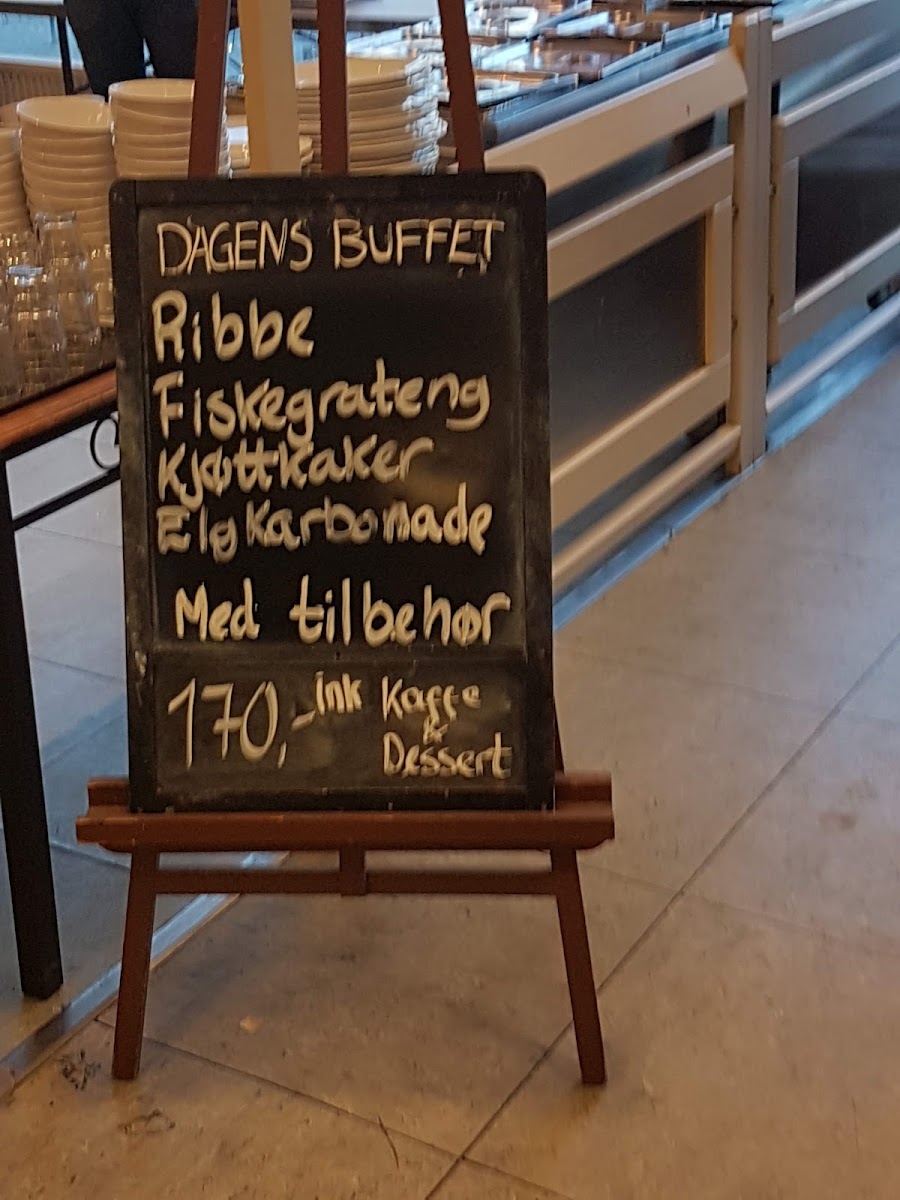 DAGENS BUFFET
Ribbe
Fiskegrateng
Kjøttkaker
Elg Karbonade
Med tilbehør
170,- ink Kaffe
&
Dessert